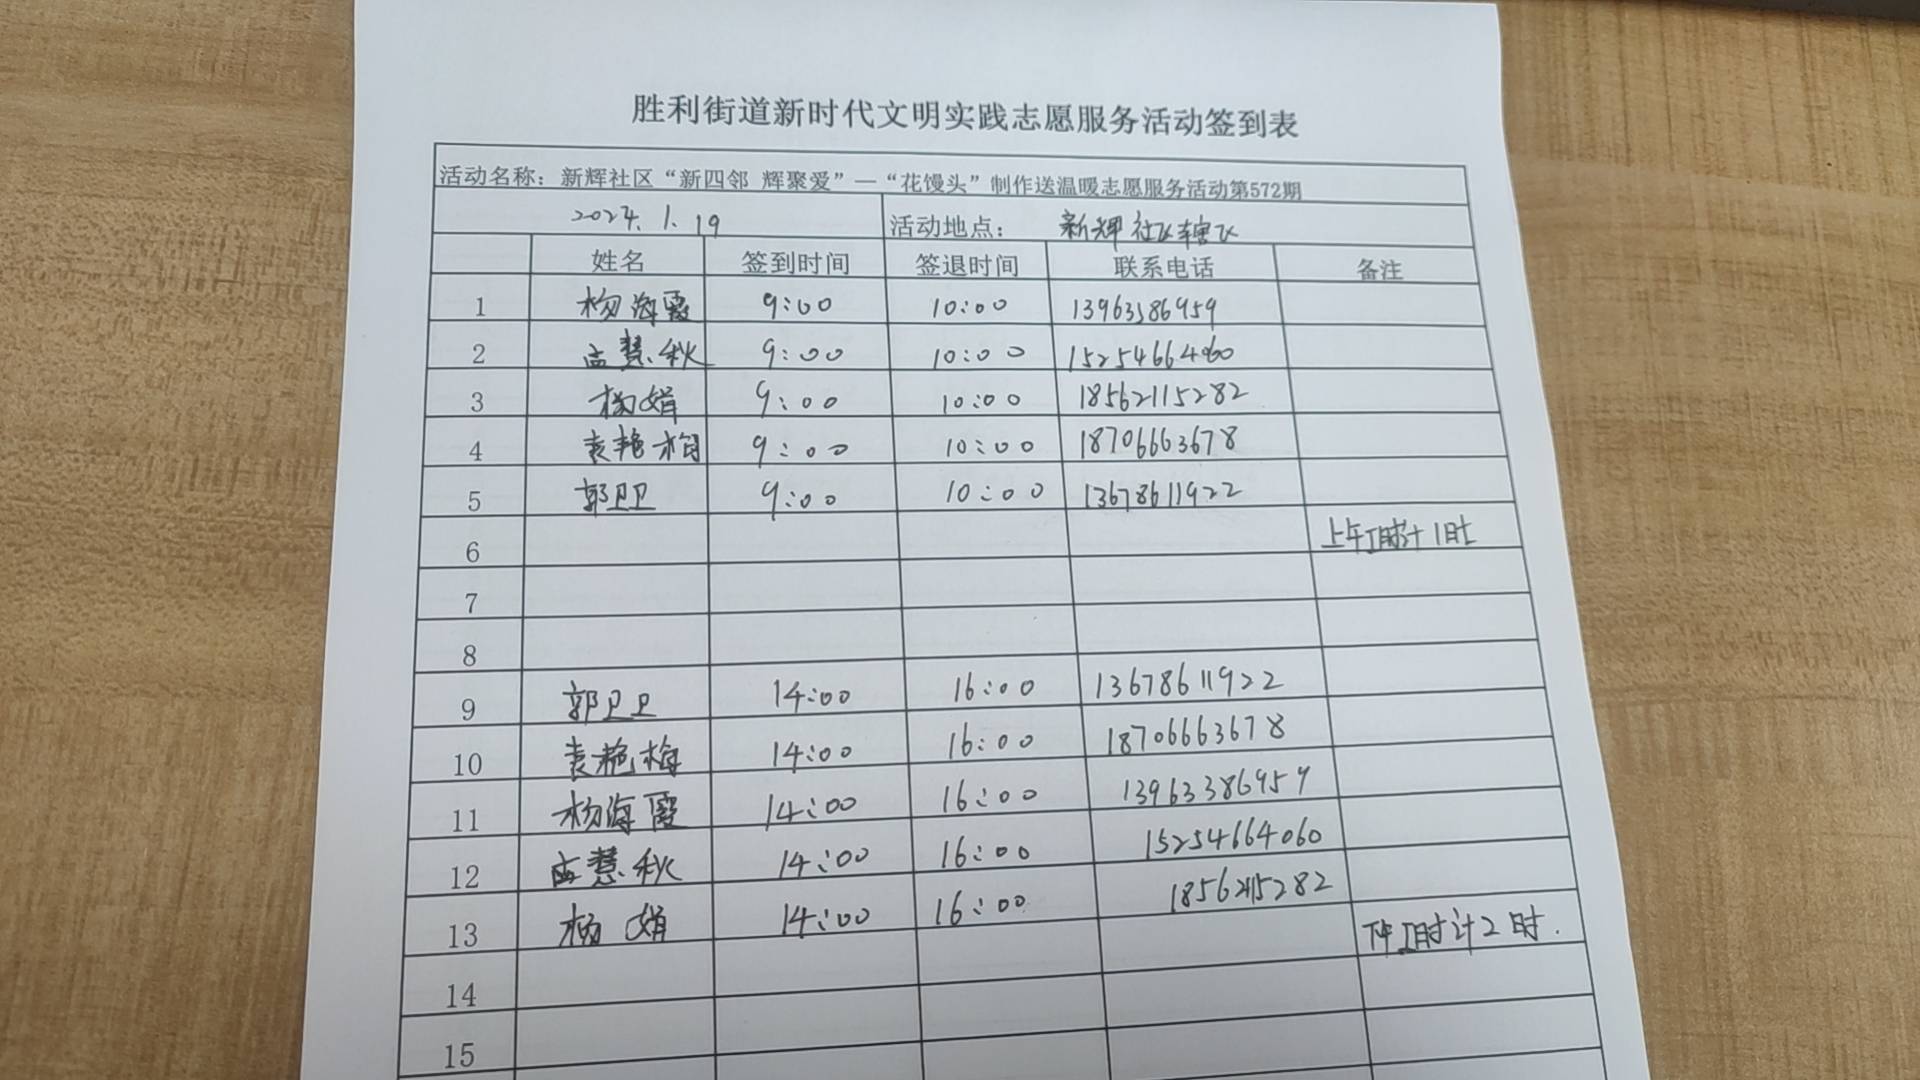 胜利街道新时代文明实践志愿服务活动签到表
活动名称：新辉社区“新四邻 辉聚爱”—“花馍头”制作送温暖志愿服务活动第572期
2024.1.19 活动地点： 新辉社区辖区
姓名 签到时间 签退时间 联系电话 备注
1 杨海霞 9:00 10:00 13963386959
2 孟慧秋 9:00 10:00 15254664060
3 杨娟 9:00 10:00 18562115282
4 袁艳梅 9:00 10:00 18706663678
5 郭卫卫 9:00 10:00 13678611922
6 上午工时计1时
7
8
9 郭卫卫 14:00 16:00 13678611922
10 袁艳梅 14:00 16:00 18706663678
11 杨海霞 14:00 16:00 13963386959
12 孟慧秋 14:00 16:00 15254664060
13 杨娟 14:00 16:00 18562115282
下午工时计2时.
14
15